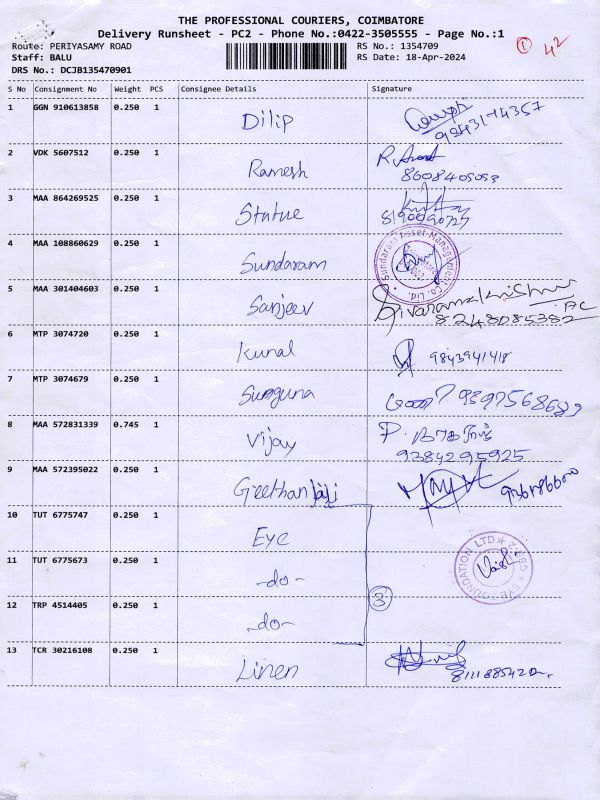 THE PROFESSIONAL COURIERS, COIMBATORE
Delivery Runsheet - PC2 - Phone No.:0422-3505555 - Page No.:1
Route: PERIYASAMY ROAD RS No.: 1354709 1 42
Staff: BALU RS Date: 18-Apr-2024
DRS No.: DCJB135470901
S No Consignment No Weight PCS Consignee Details Signature
1 GGN 910613858 0.250 1 Dilip
2 VDK 5607512 0.250 1 Ramesh
8608405053
3 MAA 864269525 0.250 1 Statue
8190090725
4 MAA 108860629 0.250 1 Sundaram Sundaram Asset Management Co. Ltd.
5 MAA 301404603 0.250 1 Sanjeev Sivaramakrishnan
8248085382
6 MTP 3074720 0.250 1 Kunal 9843941418
7 MTP 3074679 0.250 1 Suguna
8 MAA 572831339 0.745 1 Vijay
9384295925
9 MAA 572395022 0.250 1 Geethanjali
10 TUT 6775747 0.250 1 Eye
11 TUT 6775673 0.250 1 -do- EYE FOUNDATION LTD
12 TRP 4514405 0.250 1 -do- 3
13 TCR 30216108 0.250 1 Linen